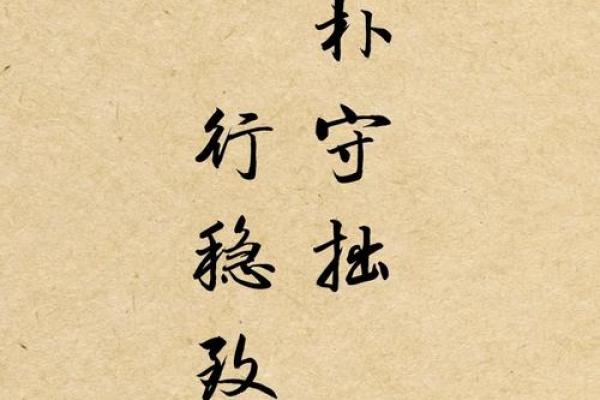 朴守拙
行稳致